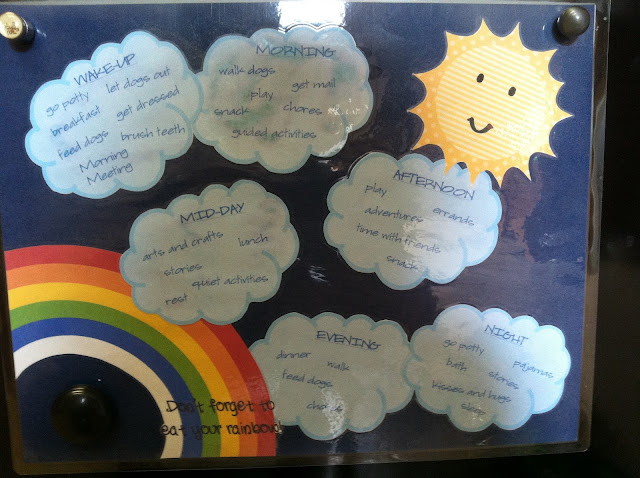 WAKE-UP
go potty let dogs out
breakfast get dressed
feed dogs brush teeth
Morning
Meeting
MORNING
walk dogs get mail
play
snack chores
guided activities
MID-DAY
arts and crafts lunch
stories
quiet activities
rest
AFTERNOON
play errands
adventures
time with friends
snack
EVENING
dinner walk
feed dogs
NIGHT
go potty pajamas
bath stories
kisses and hugs
sleep
Don't forget to
eat your rainbow!